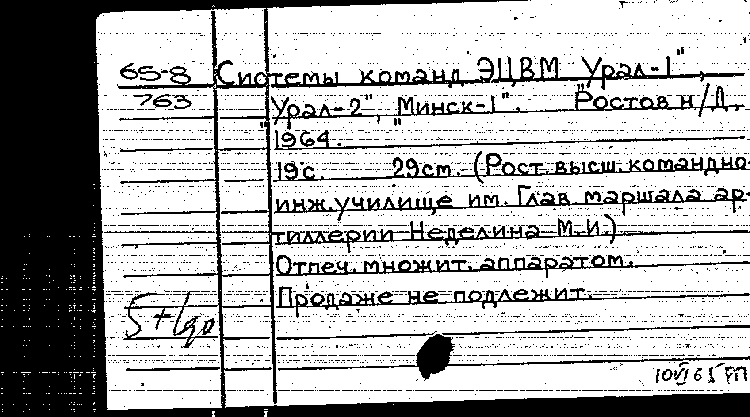 65-8 Системы команд ЭЦВМ "Урал-1",
763 "Урал-2", "Минск-1". Ростов н/Д,
1964.
19с. 29см. (Рост. высш. командно-
инж. училище им. Глав маршала ар-
тиллерии Неделина М.И.)
Отпеч. множит. аппаратом.
Продаже не подлежит.